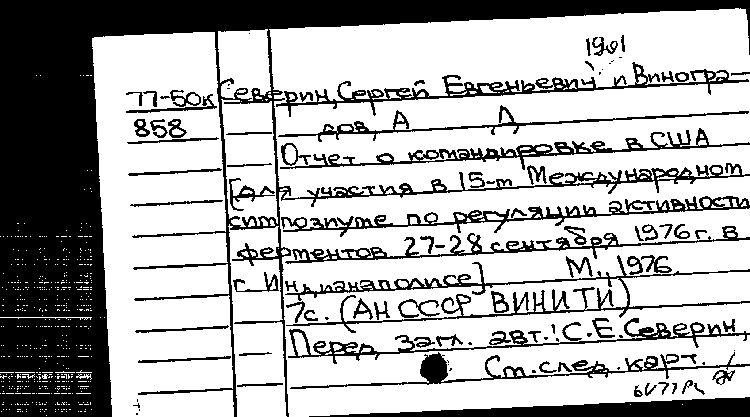 1901
77-50к Северин, Сергей Евгеньевич и Виногра-
858 дов, А Д
Отчет о командировке в США
[для участия в 15-м Международном
симпозиуме по регуляции активности
ферментов 27-28 сентября 1976 г. в
г. Индианаполисе]. М., 1976.
7с. (АН СССР ВИНИТИ)
Перед загл. авт.: С.Е.Северин,
См. след. карт.